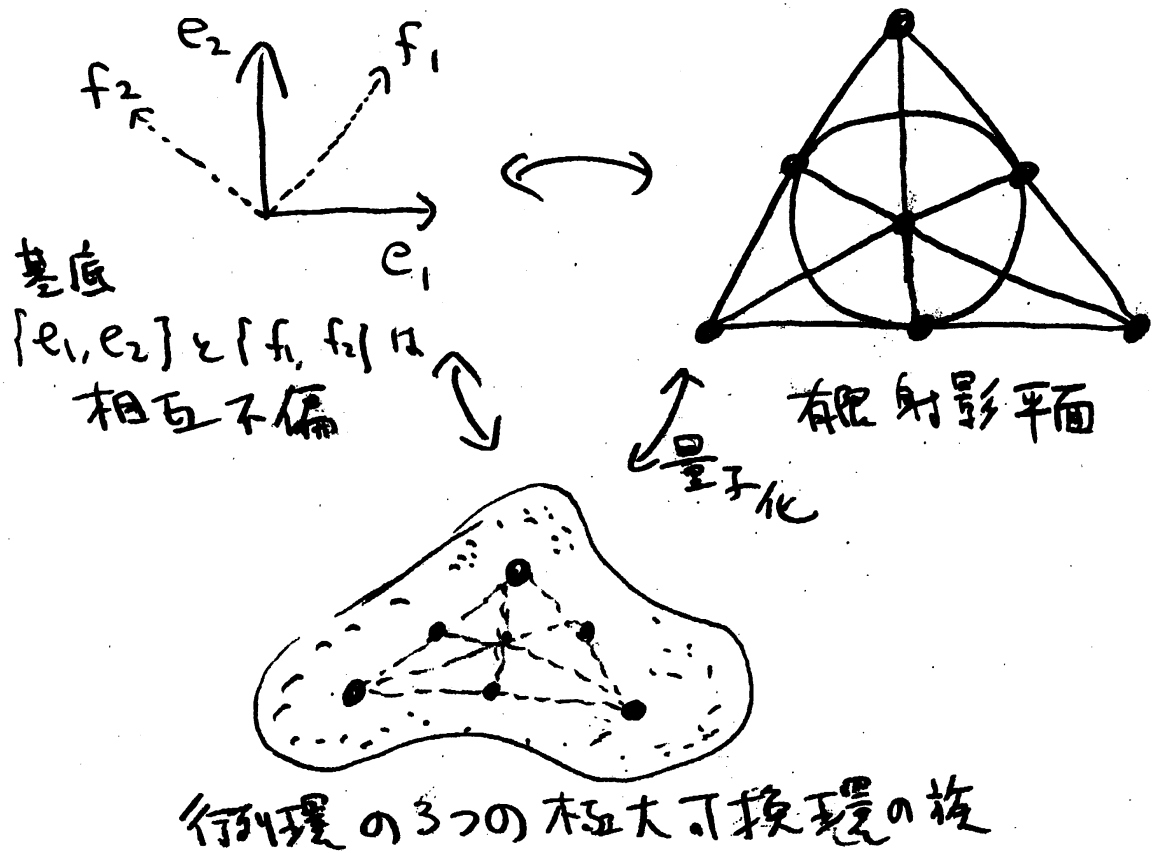 e2
f1
f2
e1
基底
{e1, e2}と{f1, f2}は
相互不偏
有限射影平面
量子化
行列環の3つの極大可換環の族